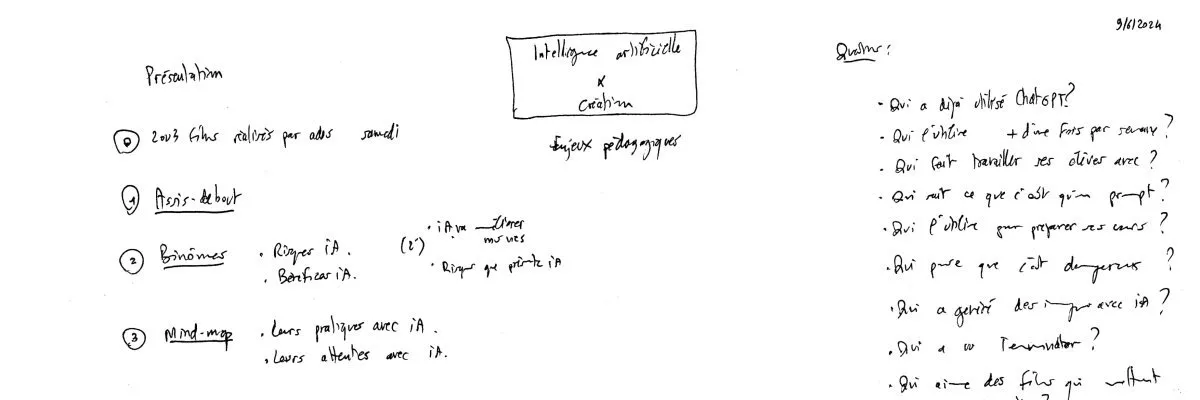 9/6/2024
Intelligence artificielle
x
Création
Enjeux pédagogiques
Présentation
0 2 ou 3 films réalisés par ados samedi
1 Assis-debout
2 Binômes
• Risques iA.
• Bénéfices iA.
(2')
• iA va
• Risques que présente iA
3 Mind-map
• Leurs pratiques avec iA.
• Leurs attentes avec iA.
• Qui a déjà utilisé ChatGPT?
• Qui l'utilise + d'une fois par semaine?
• Qui fait travailler ses élèves avec?
• Qui sait ce que c'est qu'un prompt?
• Qui l'utilise pour préparer ses cours?
• Qui pense que c'est dangereux?
• Qui a généré des images avec iA?
• Qui a vu Terminator?
• Qui aime des films qui mettent